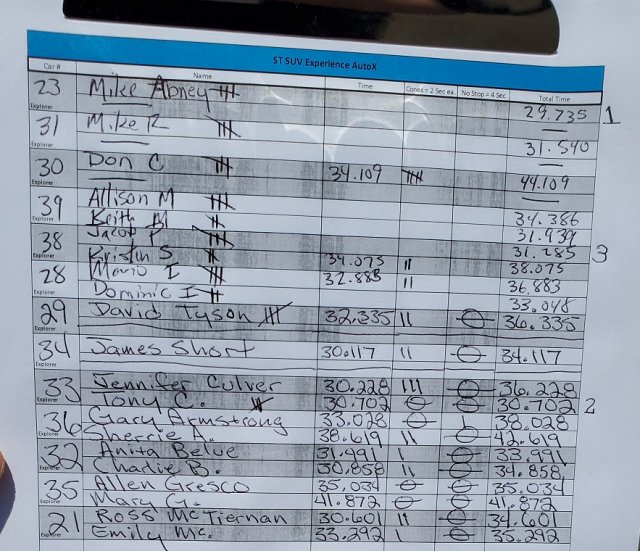 ST SUV Experience AutoX
Car # Name Time Cones = 2 Sec ea. No Stop = 4 Sec Total Time
23 Mike Abney 29.735 1
Explorer
31 Mike R 31.540
Explorer
30 Don C 34.109 44.109
Explorer
39 Allison M 34.386
Explorer Keith M 31.939
38 Jacob P 31.285 3
Explorer Kristin S 34.075 11 38.075
28 Mario I 32.883 11 36.883
Explorer Dominic I 33.048
29 David Tyson 32.335 11 0 36.335
Explorer
34 James Short 30.117 11 0 34.117
Explorer
33 Jennifer Culver 30.228 111 0 36.228
Explorer Tony C. 30.702 0 0 30.702 2
36 Gary Armstrong 33.028 0 1 38.028
Explorer Sherrie A. 38.619 11 0 42.619
32 Anita Belue 31.991 1 0 33.991
Explorer Charlie B. 30.858 11 0 34.858
35 Allen Gresco 35.034 0 0 35.034
Explorer Mary G. 41.872 0 0 41.872
21 Ross McTiernan 30.601 11 0 34.601
Explorer Emily Mc. 33.292 1 0 35.292